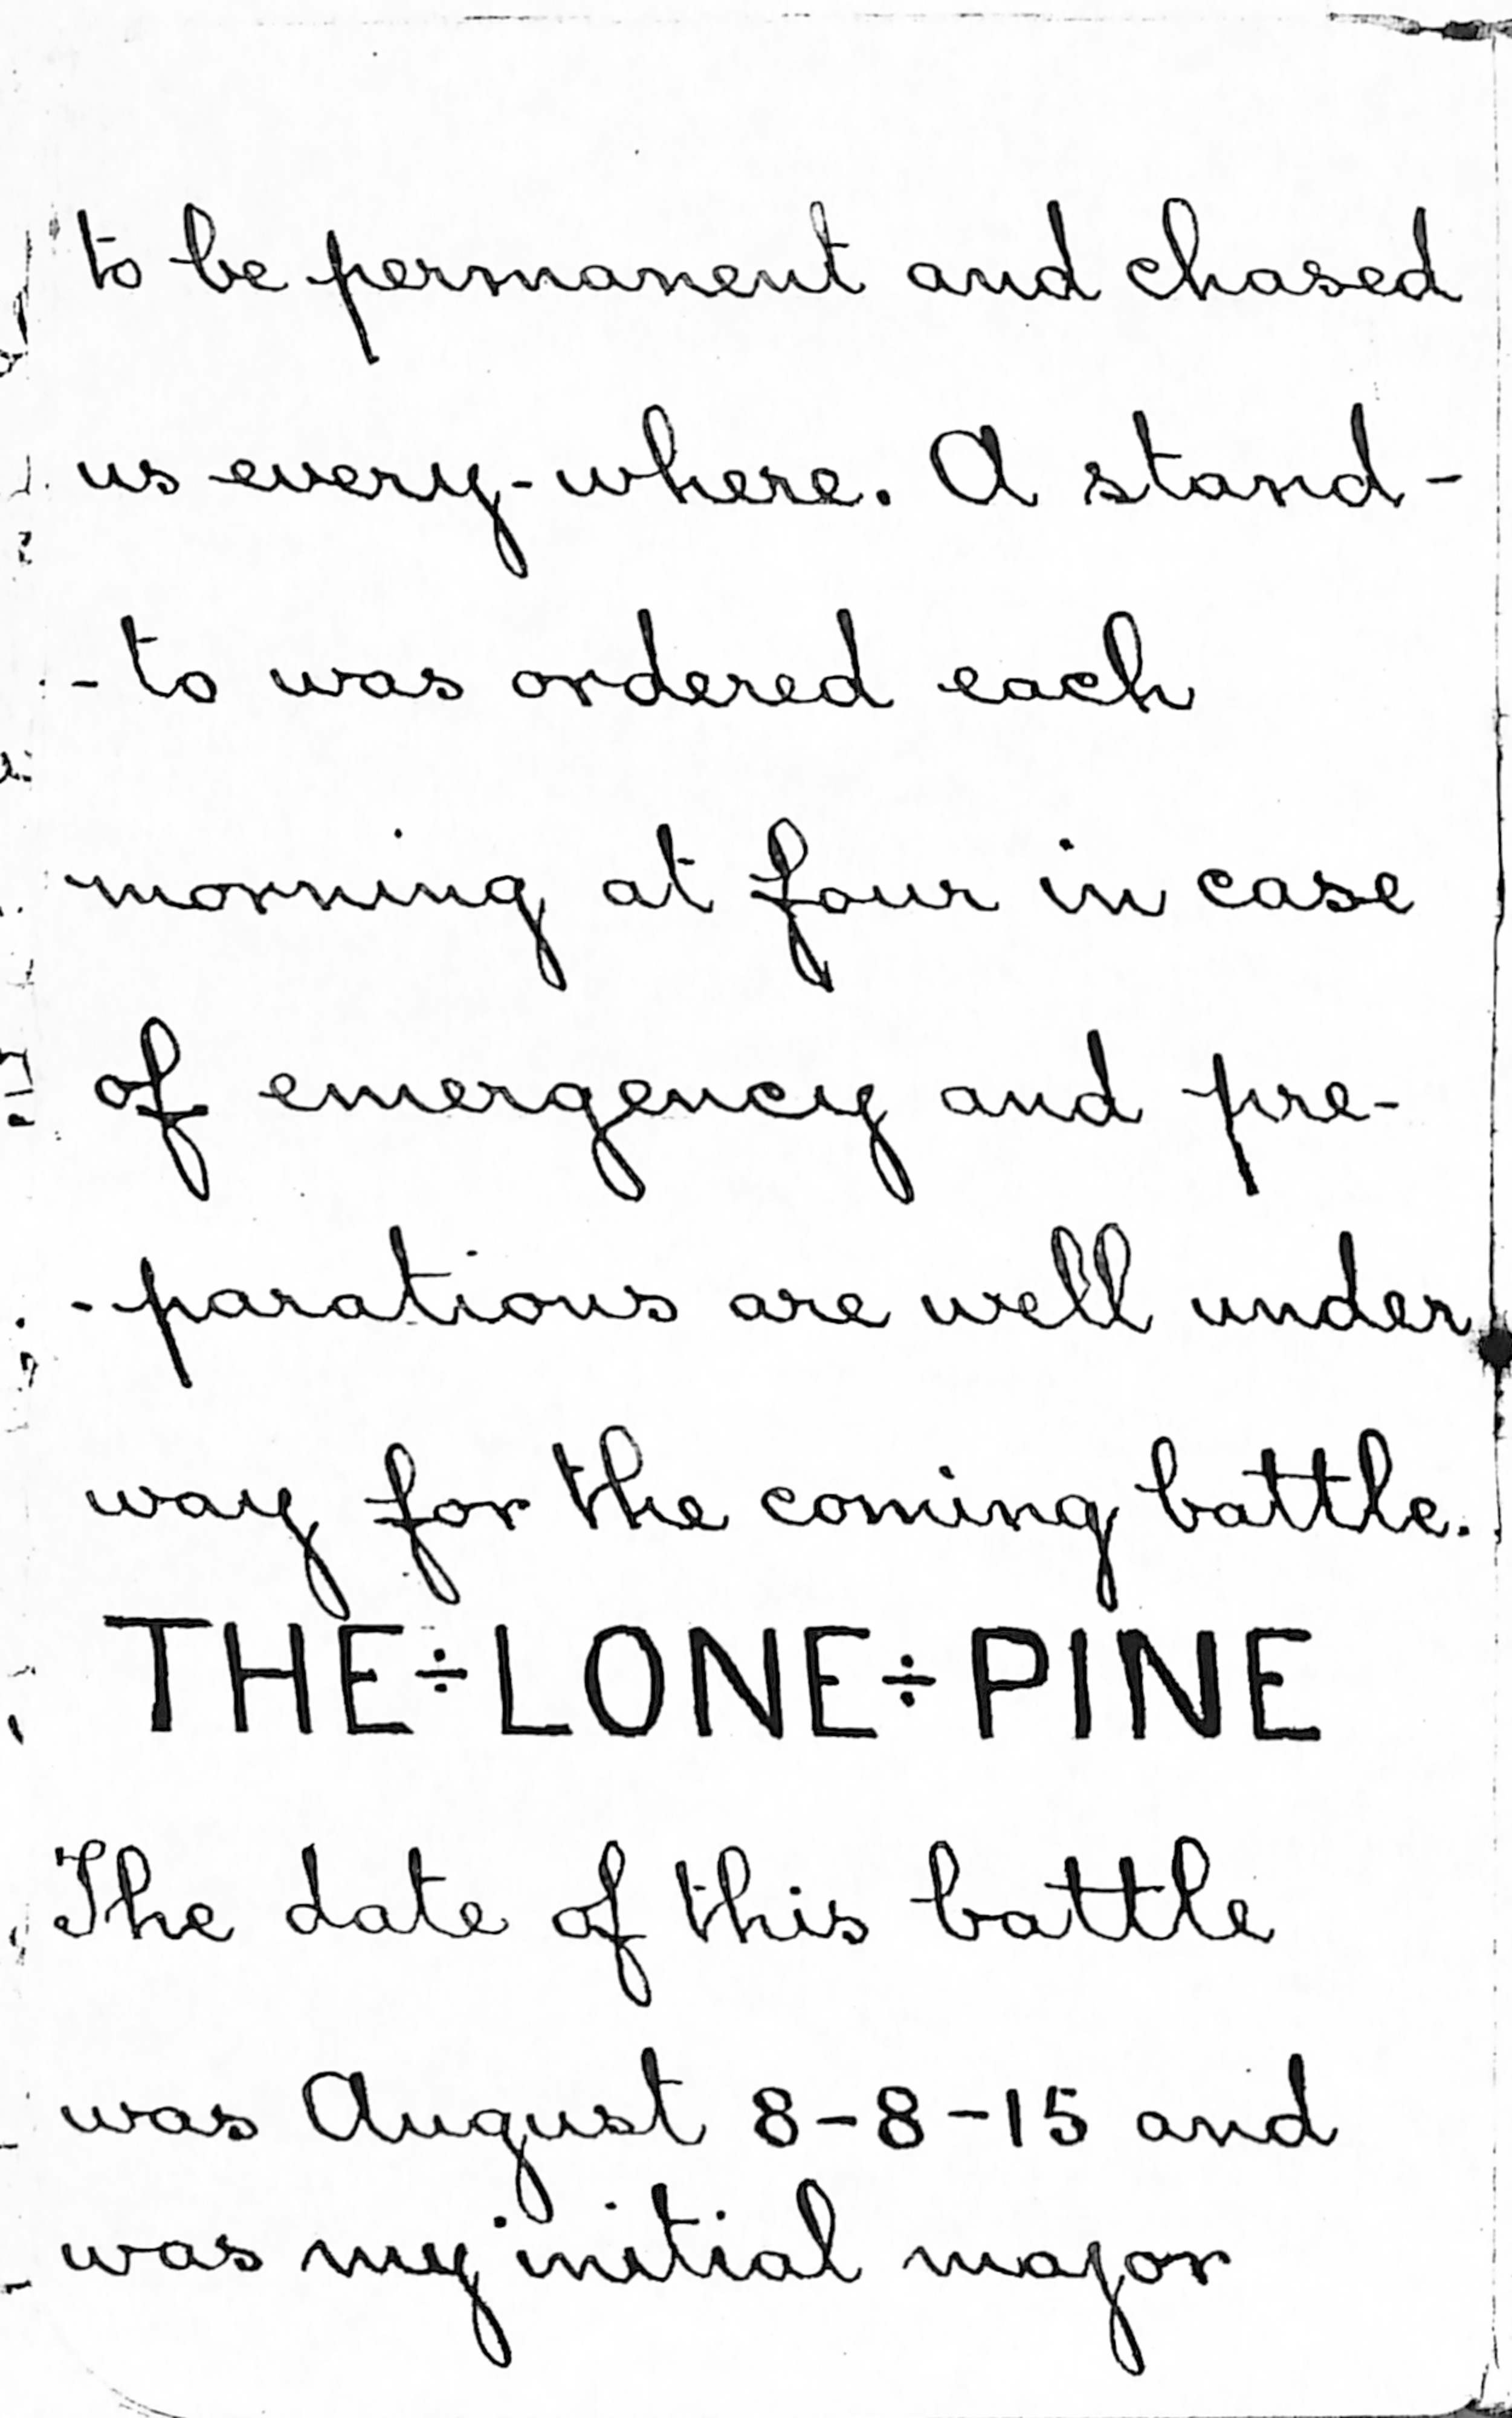 to be permanent and chased
us every-where. A stand-
-to was ordered each
morning at four in case
of emergency and pre-
-parations are well under
way for the coming battle.
THE÷LONE÷PINE
The date of this battle
was August 8-8-15 and
was my initial major